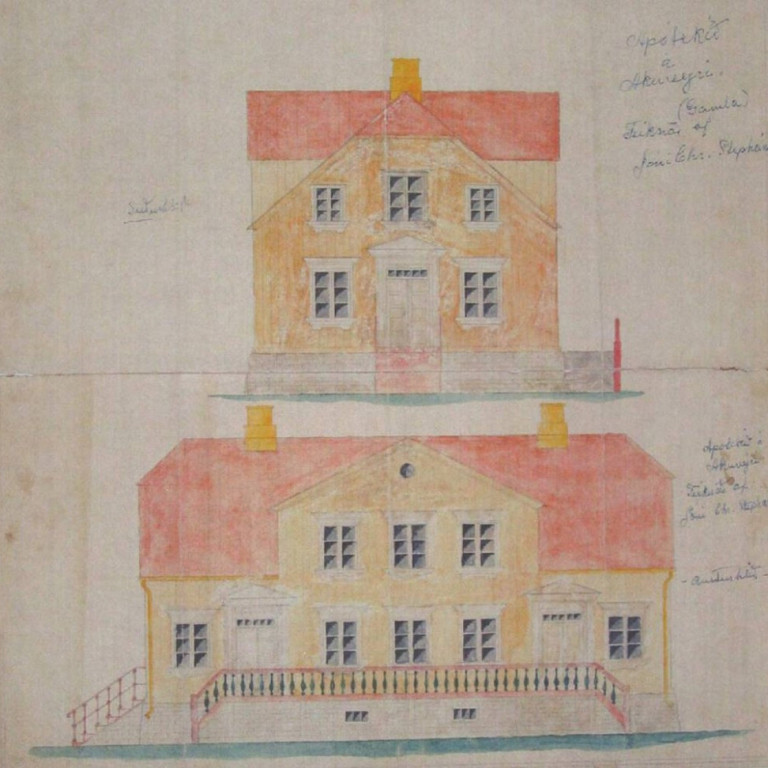 Apótekið
á
Akureyri.
(Gamla)
Teiknað af
Jóni Chr. Stephán
Suðurhlið
Apótekið á
Akureyri
Teiknað af
Jóni Chr. Stephá
- Austurhlið -